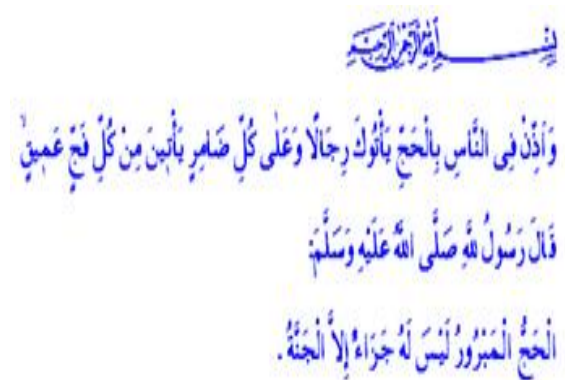 بِسْمِ اللهِ الرَّحْمٰنِ الرَّحِيمِ
وَاَذِّنْ فِى النَّاسِ بِالْحَجِّ يَأْتُوكَ رِجَالًا وَعَلٰى كُلِّ ضَامِرٍ يَأْتِينَ مِنْ كُلِّ فَجٍّ عَمِيقٍۙ
قَالَ رَسُولُ للهِ صَلَّى اللهُ عَلَيْهِ وَسَلَّمَ:
الْحَجُّ الْمَبْرُورُ لَيْسَ لَهُ جَزَاءٌ إِلاَّ الْجَنَّةُ .